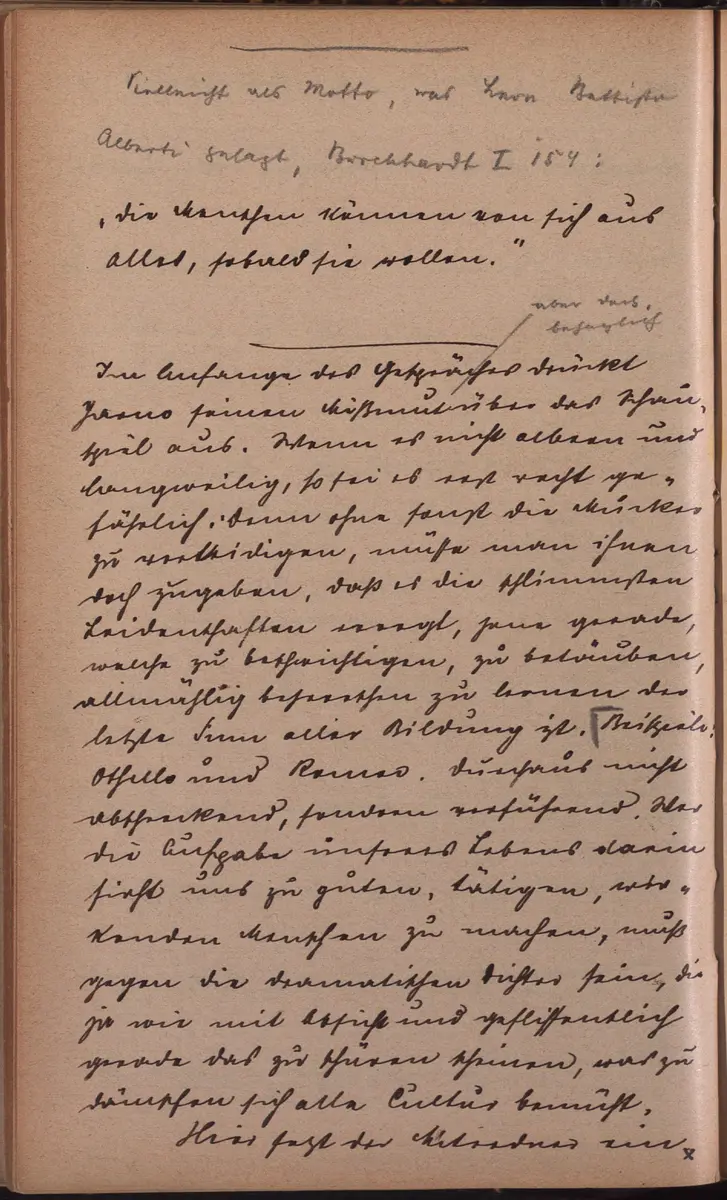 Vielleicht als Motto, was Leon Battista
Alberti gesagt, Burckhardt I 154:
„die Menschen können von sich aus
alles, sobald sie wollen.“
aber das.
behaglich
Im Anfange des Gespräches drückt
Jarno seinen Mißmut über das Schau-
spiel aus. Wenn es nicht albern und
langweilig, so sei es erst recht ge-
fährlich; denn ohne sonst die Mucker
zu vertheidigen, müsse man ihnen
doch zugeben, daß es die schlimmsten
Leidenschaften erregt, jene gerade,
welche zu beschwichtigen, zu betäuben,
allmählig beherrschen zu lernen der
letzte Sinn aller Bildung ist. Beispiele:
Othello und Romeo. Durchaus nicht
abschreckend, sondern verführend. Wer
die Aufgabe unseres Lebens darin
sieht uns zu guten, tätigen, wir-
kenden Menschen zu machen, muß
gegen die dramatischen Dichter sein, die
ja wie mit Absicht und geflissentlich
gerade das zu schüren scheinen, was zu
dämpfen sich alle Cultur bemüht.
Hier sagt der Mitredner ein